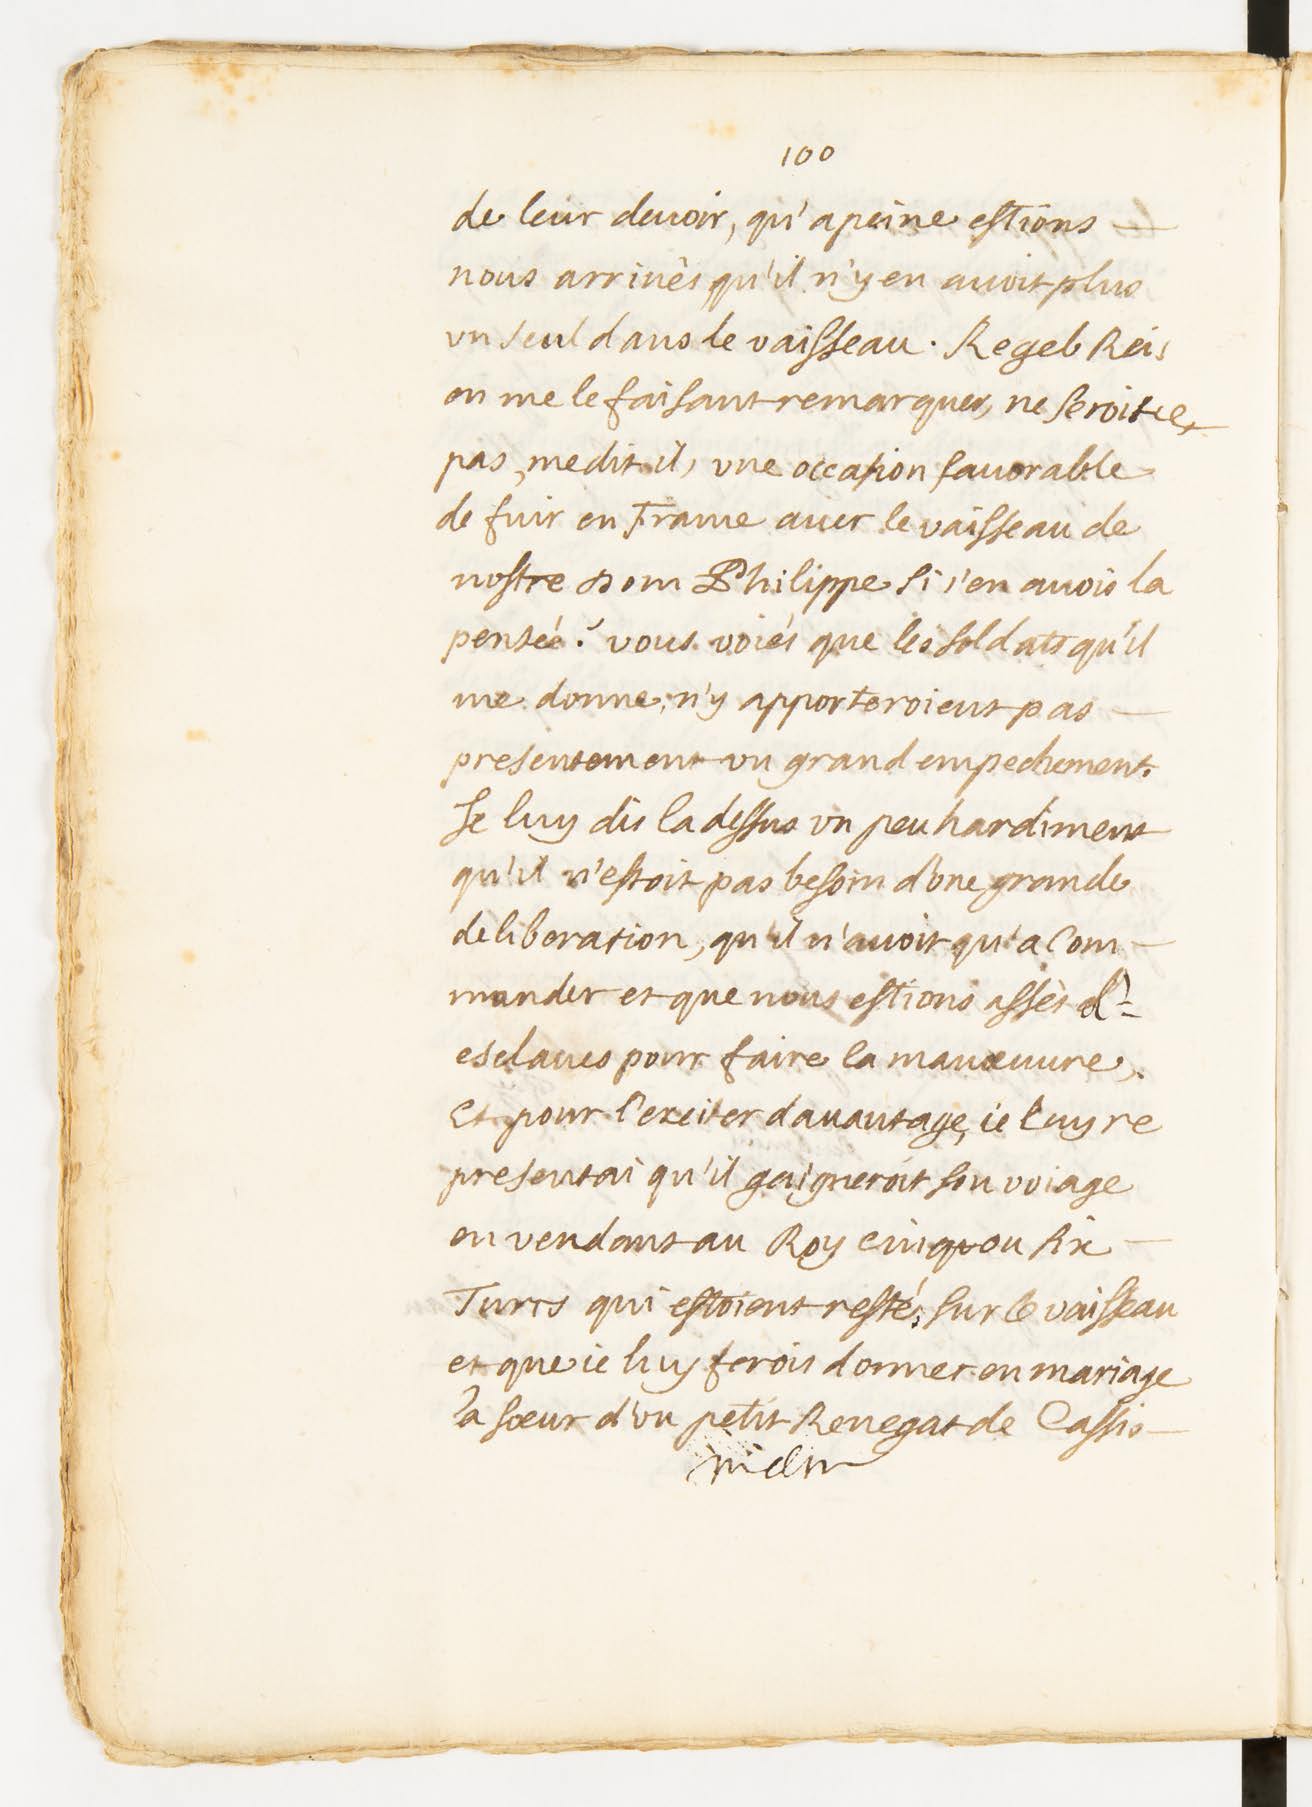 100
de leur deuoir, qu'apeine estions
nous arriués qu'il n'y en auoit plus
vn seul dans le vaisseau. Regeb Reis
en me le faisant remarquer, ne seroit ce
pas, me dit il, vne occasion fauorable
de fuir en France auec le vaisseau de
nostre Dom Philippe si i'en auois la
pensée? vous voiés que les soldats qu'il
me donne, n'y apporteroient pas
presentement vn grand empechement.
Je luy dis la dessus vn peu hardiment
qu'il n'estoit pas besoin d'une grande
deliberation, qu'il n'auoit qu'a Com
mander et que nous estions assés d'
esclaues pour faire la manœuure,
Et pour l'exciter dauantage, ie luy re
presentai qu'il gaigneroit son voiage
en vendant au Roy cinq ou six
Turcs qui estoient restés sur le vaisseau
et que ie luy ferois donner en mariage
la sœur d'vn petit Renegat de Cassis